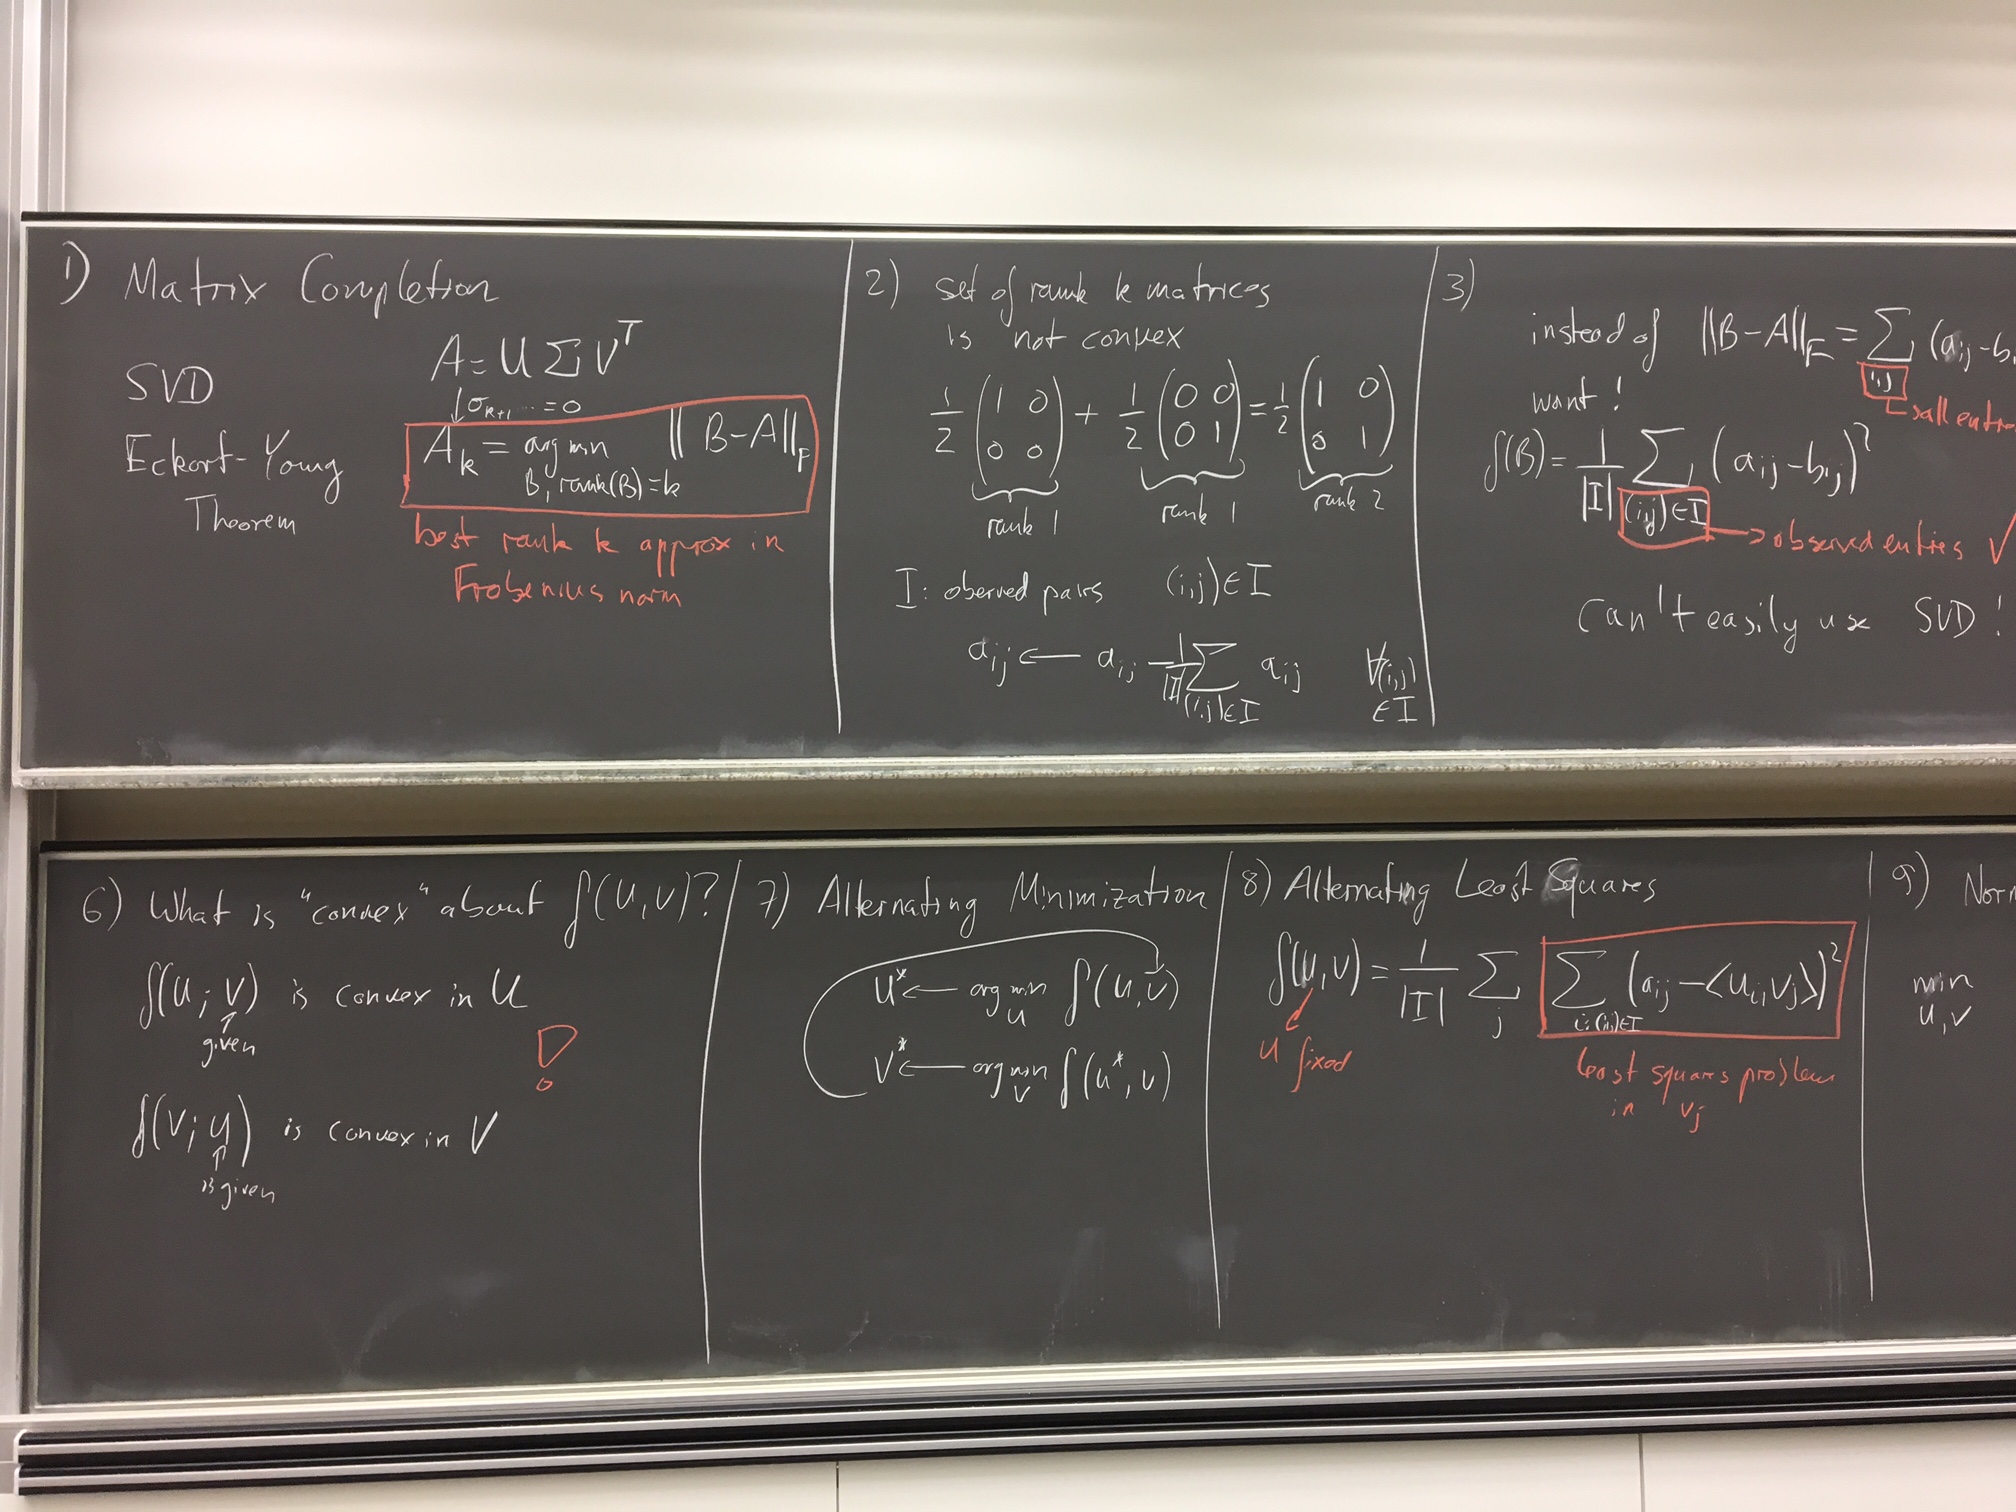 1) Matrix Completion
SVD
Eckart-Young
Theorem
A = U Σ V^T
↓ σ_{k+1} ... = 0
A_k = arg min ‖B-A‖_F
B, rank(B)=k
best rank k approx in
Frobenius norm
2) set of rank k matrices
is not convex
1/2 (1 0; 0 0) + 1/2 (0 0; 0 1) = 1/2 (1 0; 0 1)
rank 1 rank 1 rank 2
I: oberved pairs (i,j)∈I
a_ij ← a_ij - 1/|I| Σ_{(i,j)∈I} a_ij ∀(i,j)
∈ I
3)
instead of ‖B-A‖_F = Σ_{i,j} (a_ij - b_i
want!
f(B) = 1/|I| Σ_{(i,j)∈I} (a_ij - b_ij)²
→ observed entries ✓
Can't easily use SVD!
6) What is "convex" about f(U,V)?
f(U; V) is convex in U
↑
given
!
f(V; U) is convex in V
↑
is given
7) Alternating Minimization
U* ← arg min_U f(U,V)
V* ← arg min_V f(U*,V)
8) Alternating Least Squares
f(U,V) = 1/|I| Σ_j Σ_{i:(i,j)∈I} (a_ij - <u_i,v_j>)²
U fixed
least squares problem
in v_j
9) Nor
min
U,V